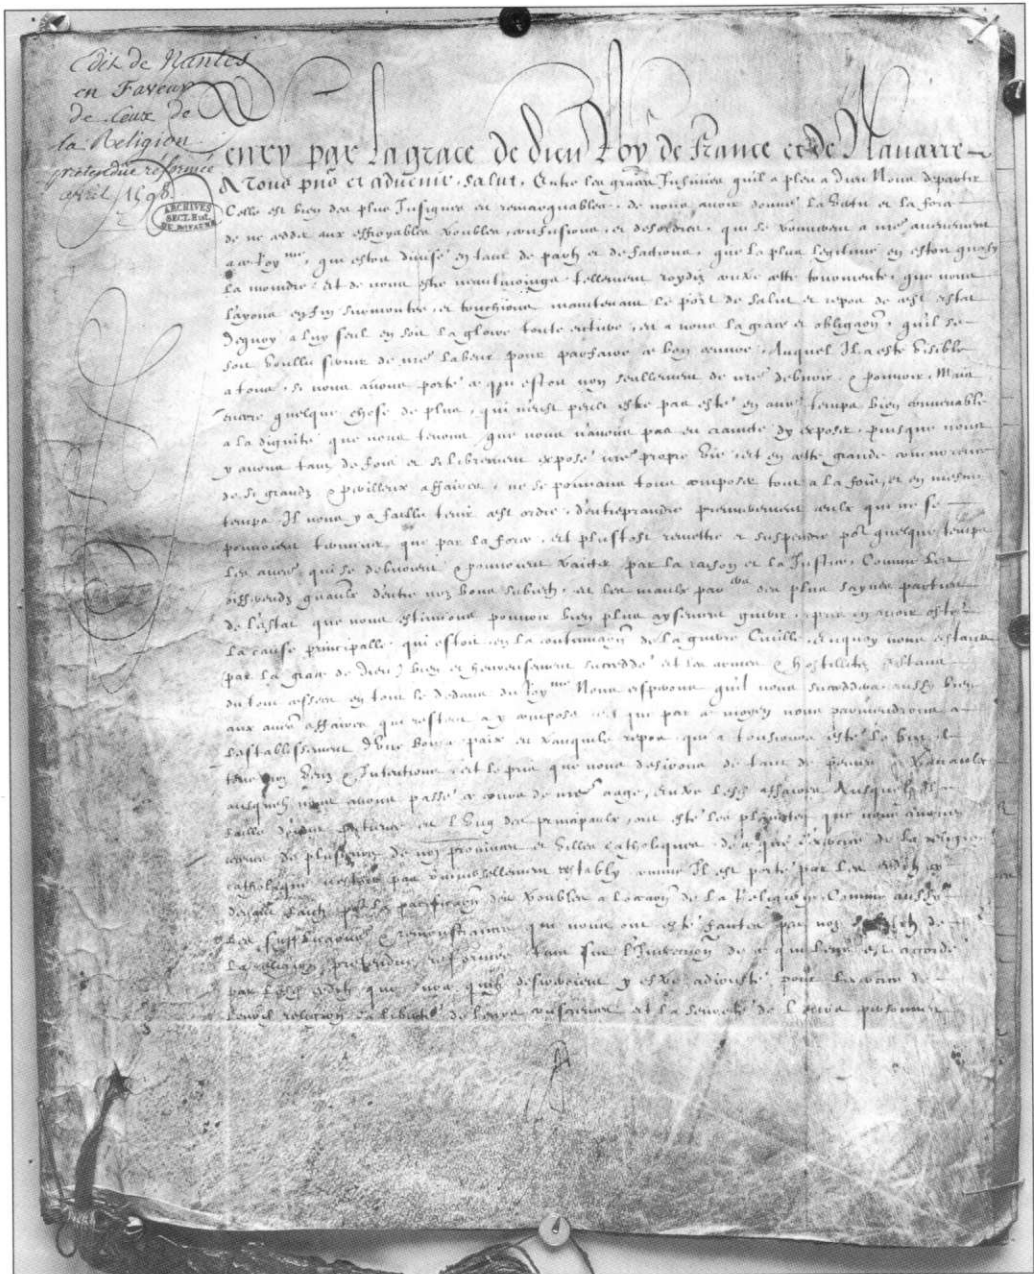 Edit de Nantes
en Faveur
de Ceux de
la Religion
prétendue réformée
avril 1598.
ARCHIVES
SECT. HIST.
DU ROYAUME
Henry par la grace de dieu Roy de France et de Navarre
A tous pns et advenir, salut, Entre les graces Infinies qu'il a pleu a Dieu Nous departir
Celle est bien des plus Insignes et remarquables, de nous avoir donné la vertu et la force
de ne cedder aux effroyables troubles, confusions, et desordres, qui se trouverent a nre advenement
a ce Roy.me, qui estoit divisé en tant de partz et de factions, que la plus legitime en estoit quasy
la moindre, Et de nous estre neantmoings tellement roydiz contre ceste tourmente, que nous
l'ayons enfin surmontée, et touchions maintenant le port de salut et repos de cest estat
Dequoy a luy seul en soit la gloire toute entiere, et a nous la grace et obligaon, qu'il se
soit voullu servir de nre labeur pour parfaire ce bon oeuvre, Auquel Il a esté visible
a tous, si nous avons porté ce qui estoit non seullement de nre debvoir, & pouvoir, Mais
encore quelque chose de plus, qui n'eust peult estre pas esté en autre temps bien convenable
a la dignité que nous tenons, que nous n'avons pas eu craincte d'y exposer, puisque nous
y avons tant de fois et si librement exposé nre propre vie, Et en ceste grande concurrence
de si grandz & perilleux affaires, ne se pouvans tous composer tout a la fois, et en mesme
temps, Il nous y a faillu tenir cest ordre, d'entreprandre premierement ceulx qui ne se
pouvoient terminer que par la force, Et plustost remettre et suspendre por quelque temps
les autres qui se debvoient & pouvoient traicter par la raison et la Justice, Comme les
differendz gnaulx d'entre noz bons subiectz, et les maulx par.ers des plus saynes parties
de l'estat que nous estimions pouvoir bien plus aysement guerir, apres en avoir osté
la cause principalle, qui estoit en la continuaon de la guerre Civille, enquoy nous estant
par la grace de dieu) bien et heureusement succeddé et les armes & hostillitez estans
du tout cessées en tout le dedans du Roy.me Nous esperons qu'il nous succeddera aussy bien
aux autres affaires qui restent a y composer et que par ce moyen nous parviendrons a
l'establissement d'une bonne paix et tranquile repos qui a tousjours esté le but de
tous noz veuz & Intentions et le prix que nous desirons de tant de peines & travaulx
ausquelz nous avons passé ce cours de nre aage, Entre lesd. affaires Ausquelz Il a
faillu donner patience et l'Vng des principaulx, ont esté les plainctes que nous avons
receues de plusieurs de noz provinces et villes catholiques de ce que l'exercice de la religion
catholique n'estoit pas universellement restably comme Il est porté par les edictz cy
devant faictz pour la pacificaon des troubles a l'occaon de la Religion, Comme aussy
les supplicaons & remonstrances qui nous ont esté faictes par noz subiectz de
la religion pretendue reformée tant sur l'Inexecution de ce qui leur est accordé
par lesd. edictz que sur ce qu'ilz desireroient y estre adiousté pour l'exercice de
leurd. religion, la liberté de leurs consciences et la seureté de leurs personnes